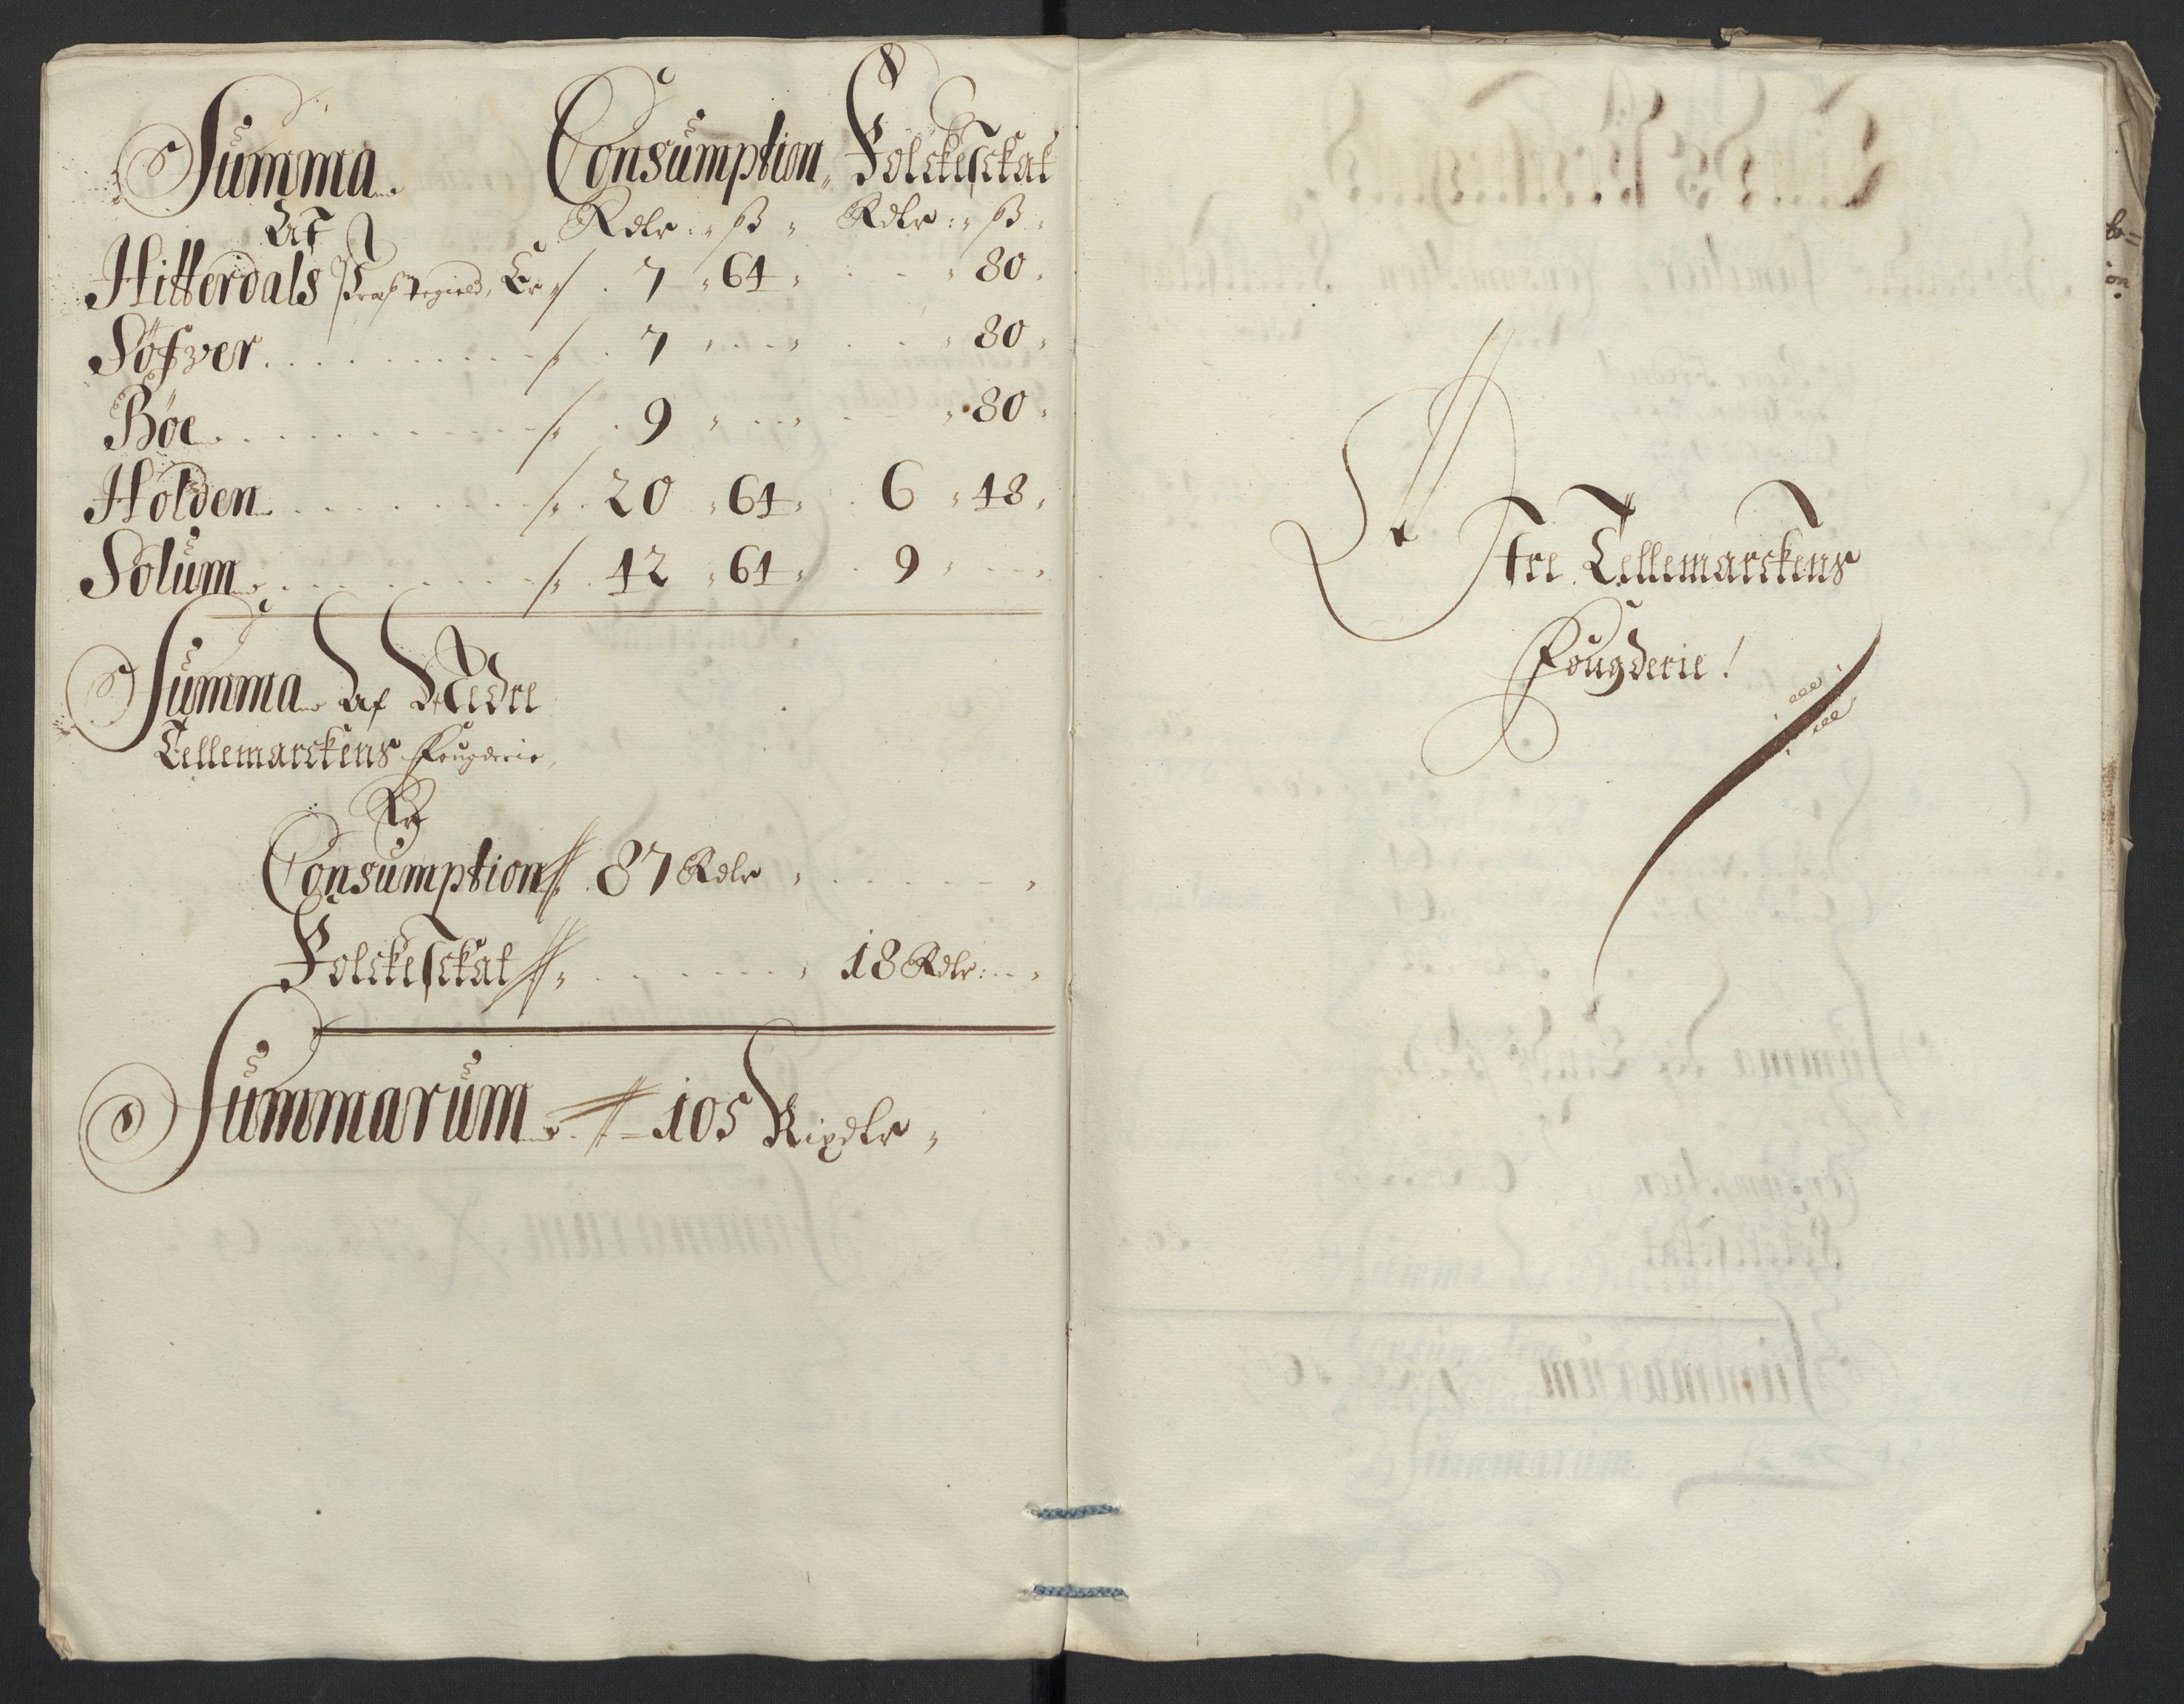 Summa Consumption, Folckeskat
Af Rdlr: ß Rdlr: ß
Hitterdals Præstegield, Er 7 64 80
Söfver 7 80
Böe 9 80
Holden 20 64 6 48
Solum 12 64 9
Summa Af Nedre
Tellemarckens Fougderie,
Er
Consumption 87 Rdlr
Folckeskat 18 Rdlr:
Summarum 105 Rixdlr
Öfre Tellemarckens
Fougderie!